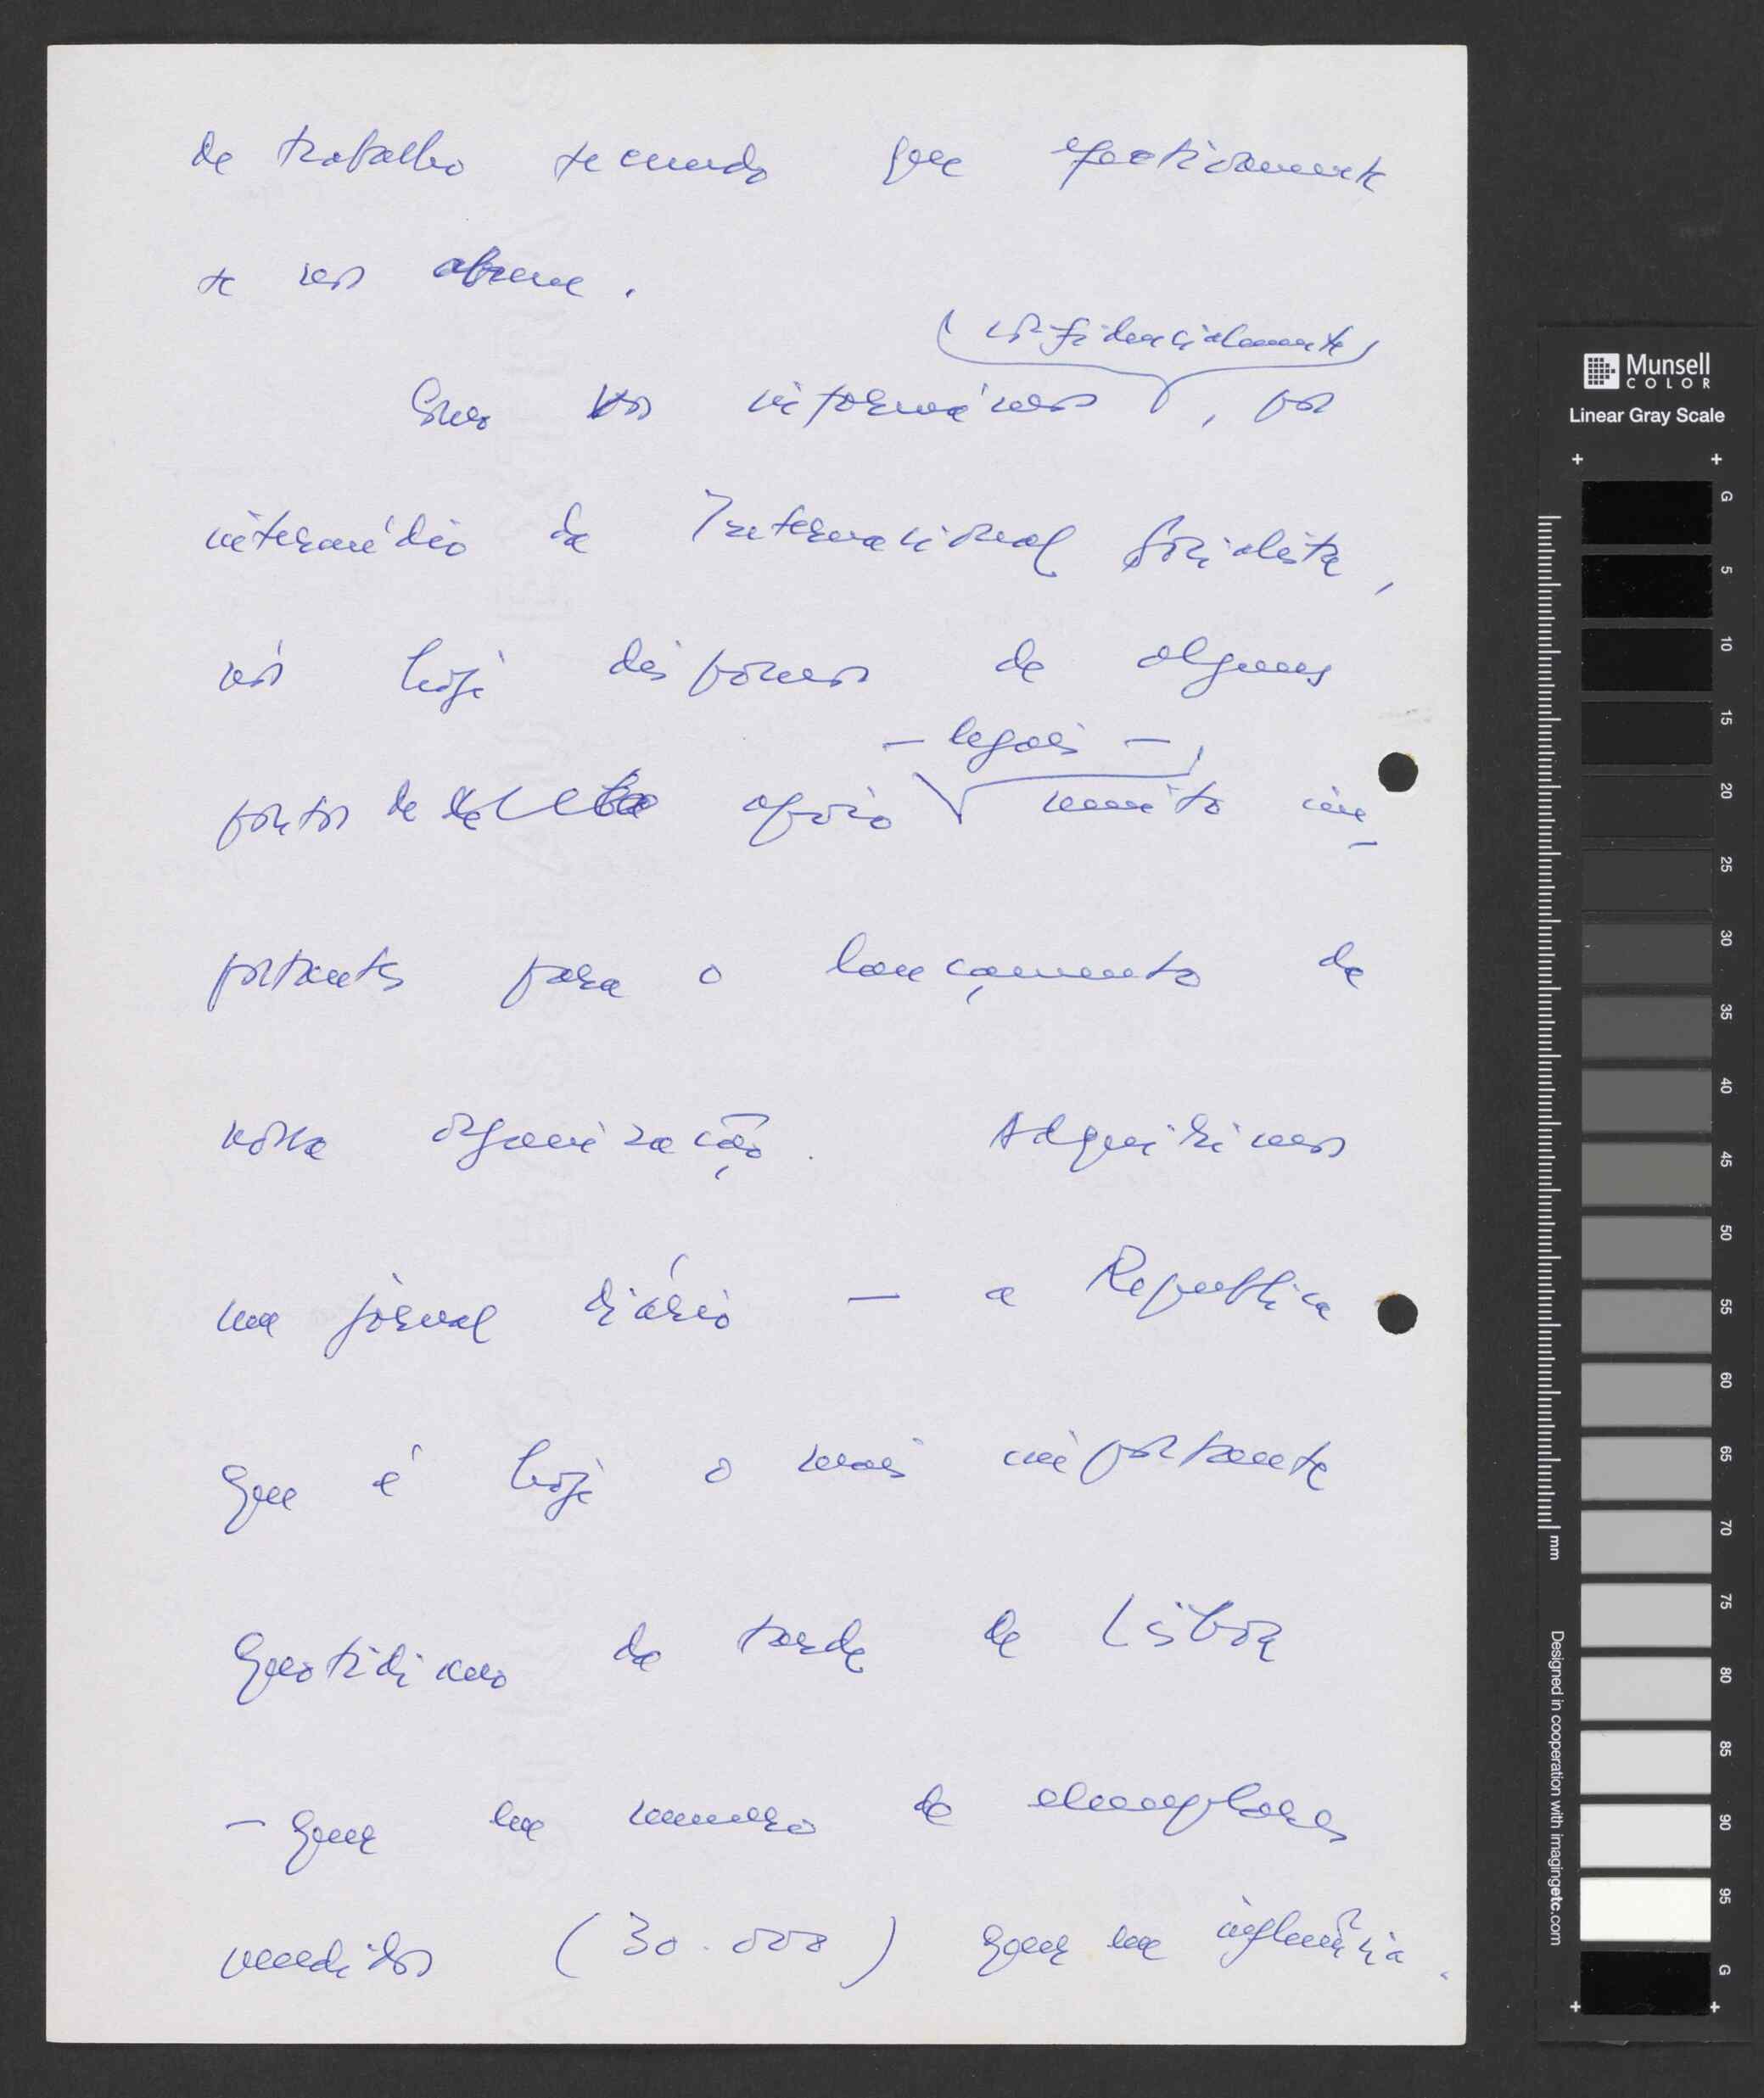 de trabalho fecundo que efectivamente
se nos abrem.
(confidencialmente)
Como vos informámos, por
intermédio da Internacional Socialista,
nós hoje dispomos de alguns
— legais —
pontos de apoio muito im-
portantes para o lançamento da
nossa organização. Adquirimos
um jornal diário — a Republica
que é hoje o mais importante
quotidiano da tarde de Lisboa
— quer em numero de exemplares
vendidos (30.000) quer em influência.
Munsell
COLOR
Linear Gray Scale
G
5
10
15
20
25
30
35
40
45
50
55
60
65
70
75
80
85
90
95
G
mm
Designed in cooperation with imagingetc.com